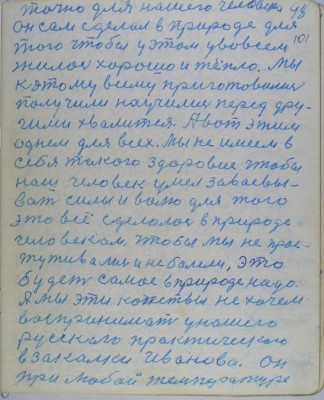 точно для нашего человека 48
Он сам сделал в природе для 101
того чтобы у этом увовсем
жилос хорошо и тёпло. Мы
к этому всиму приготовилис
получили научилис перед дру-
гими хвалитея. А вот этим
однем для всех. Мы не имеем в
себя такого здоровие чтобы
наш человек умел заваевы-
ват силы и волю для того
это всё сделолос в природе
человекам, чтобы мы не прос-
тутивалис и не болели, это
будет самое в природе надо.
А мы эти качствы не хочем
воспринимат у нашего
русскаго практическаго
в закалки Иванова. Он
при любой температуре